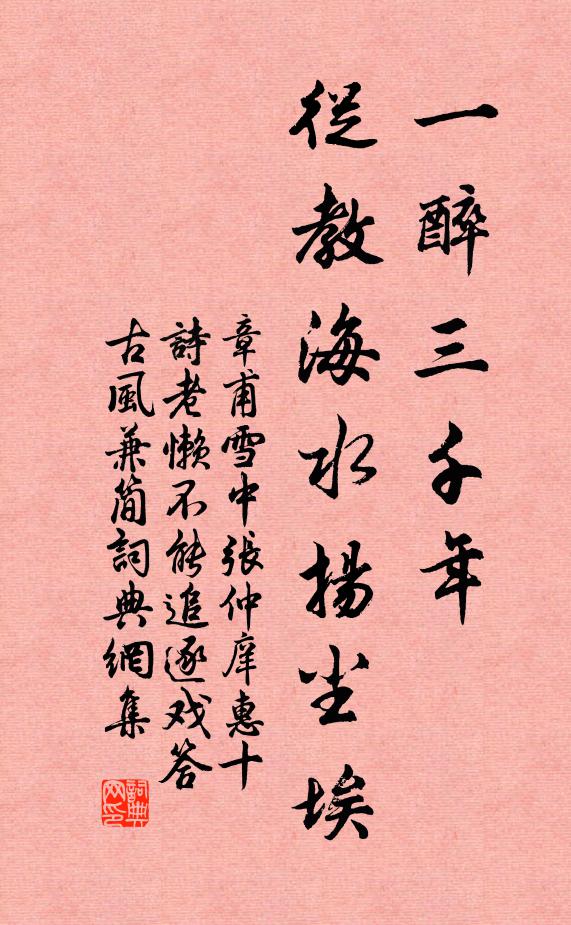 一醉三千年
從教海水揚尘埃
章甫雪中張仲庠惠十
詩老懶不能追逐戏答
古風兼簡詞典網集
詞典
网印